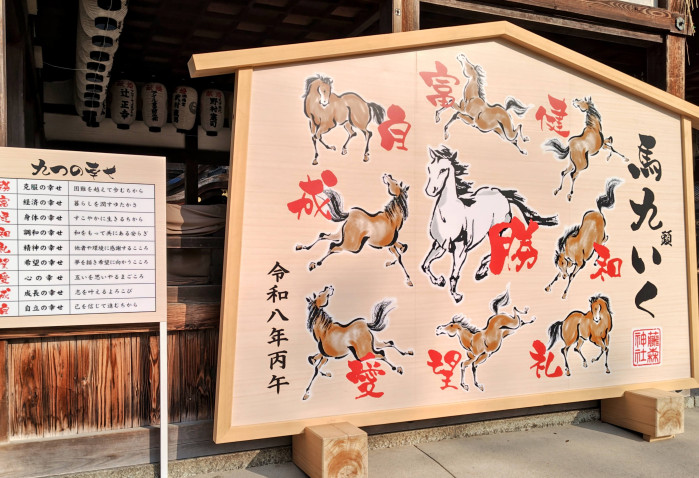 九つの幸せ
勝 克服の幸せ 困難を越えて歩むちから
富 経済の幸せ 暮らしを潤すゆたかさ
健 身体の幸せ すこやかに生きるちから
和 調和の幸せ 和をもって共にある安らぎ
礼 精神の幸せ 他者や環境に感謝するこころ
望 希望の幸せ 夢を描き希望に向かうこころ
愛 心の幸せ 互いを思いやるまごころ
成 成長の幸せ 志を叶えるよろこび
自 自立の幸せ 己を信じて進むちから
馬九頭いく
富
健
自
成
勝
和
愛
望
礼
令和八年丙午
藤森神社
辻正亭